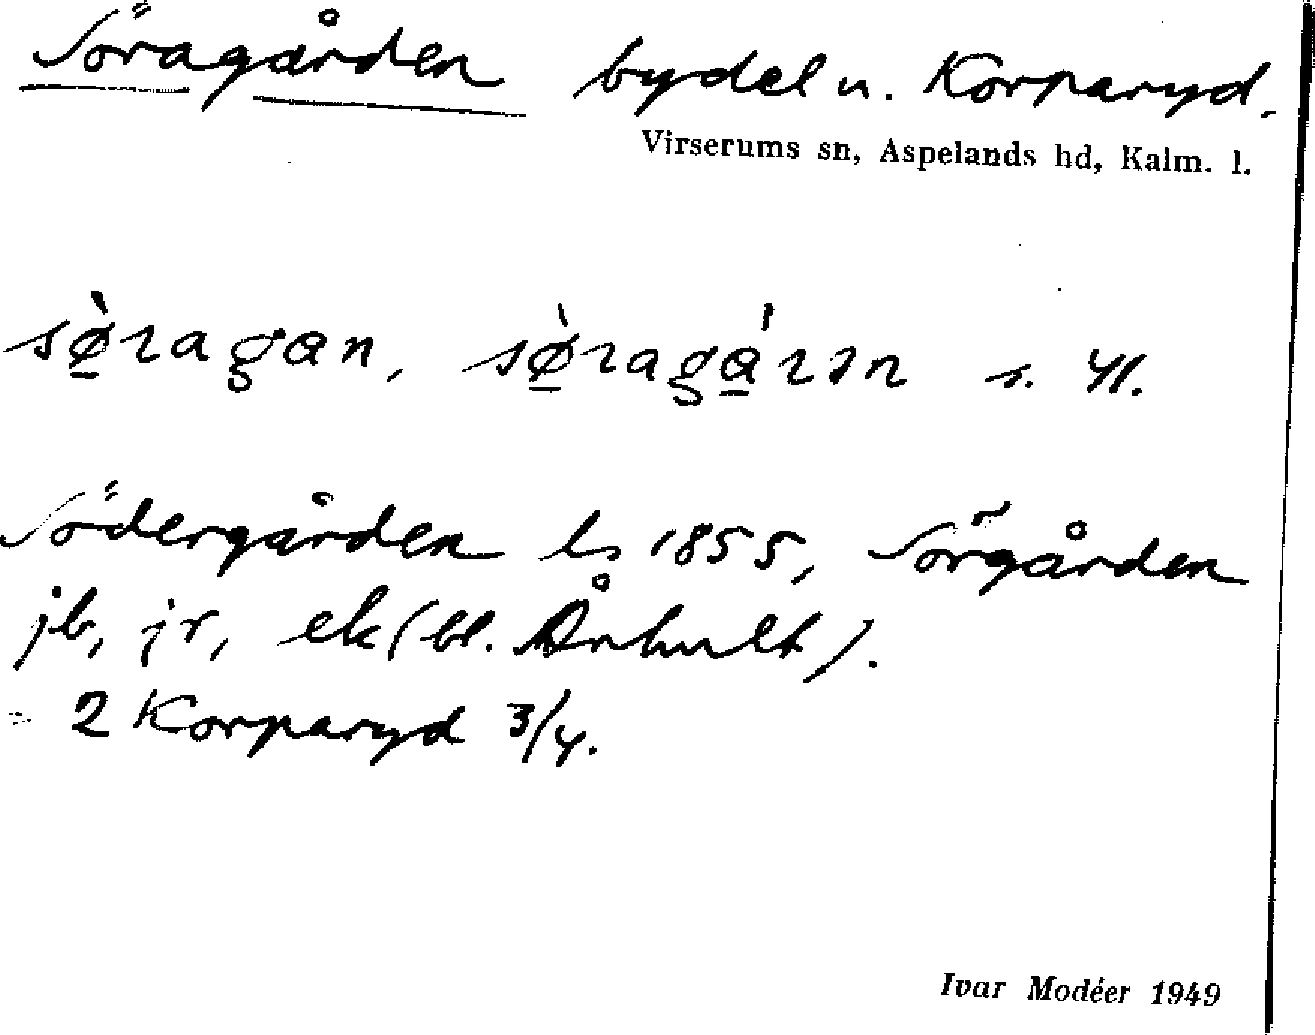 Söragården bydel u. Korparyd.
Virserums sn, Aspelands hd, Kalm. l.
sø̀ragan, sø̀ragárən s. 41.
Södergården ls 1855, Sörgården
jb, jr, ek (bl. Århult).
= 2 Korparyd 3/4.
Ivar Modéer 1949